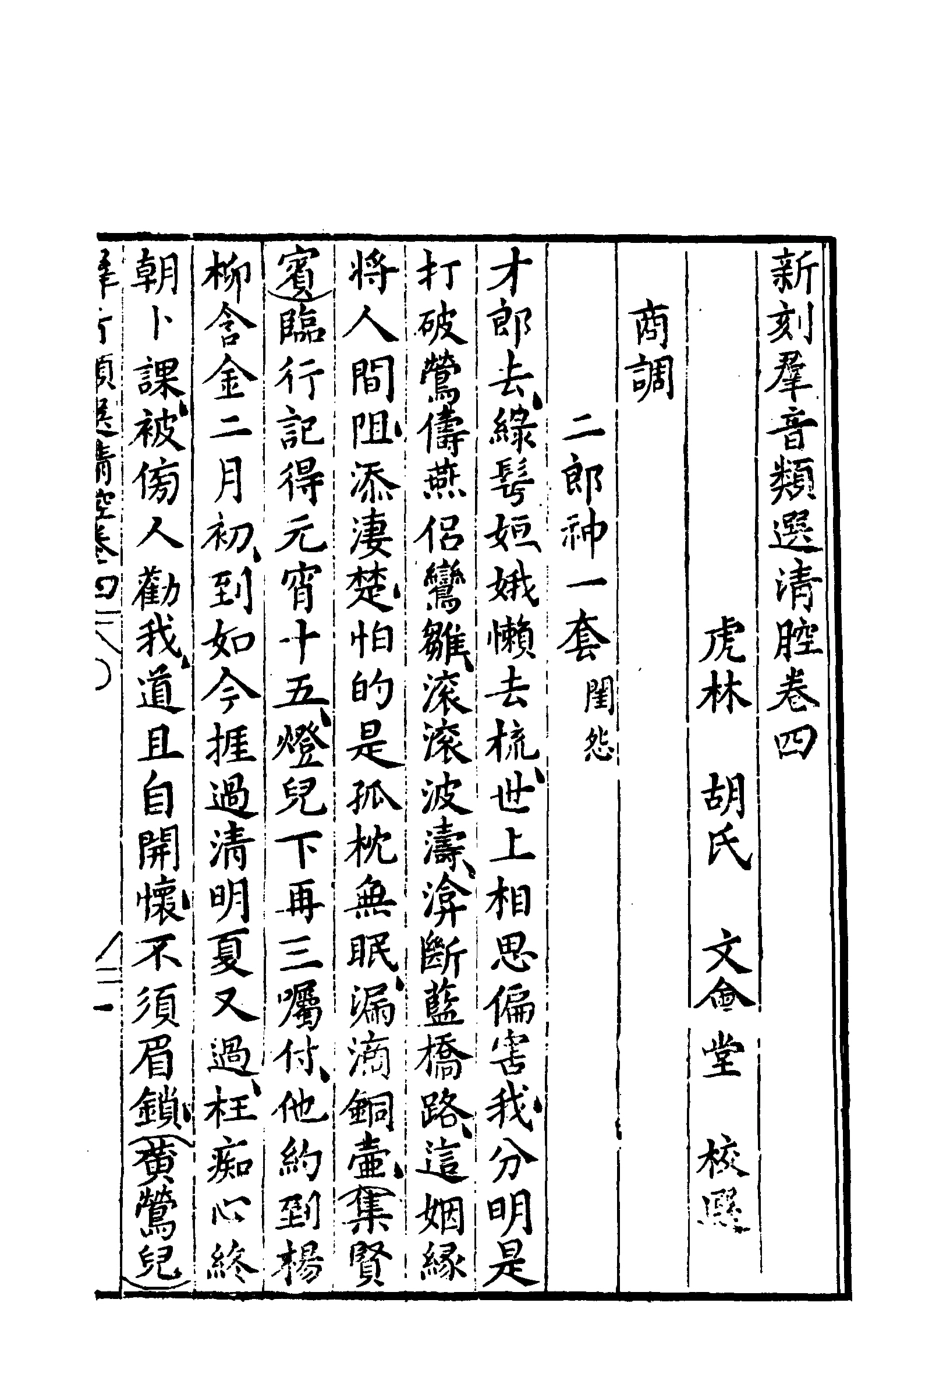 新刻羣音類選清腔卷四
虎林 胡氏 文會堂 校選
商調
二郎神一套 閨怨
才郎去、綠鬓姮娥懶去梳、世上相思偏害我、分明是
打破鶯儔燕侶鸞雛、滚滚波濤、渰斷藍橋路、這姻縁
將人間阻、添淒楚、怕的是孤枕無眠、漏滴銅壺、（集賢
賓）臨行記得元宵十五、燈兒下再三囑付、他約到楊
柳含金二月初、到如今捱過清明夏又過、枉痴心終
朝卜課、被傍人勸我、道且自開懷、不須眉鎖、（黄鶯兒）
羣音類選清腔卷四 一